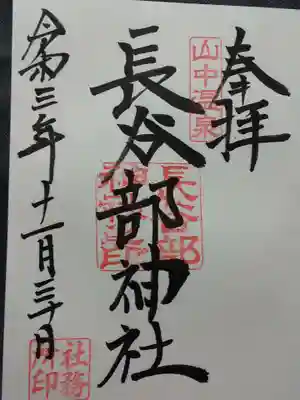 奉拝
山中温泉
長谷部神社
長谷部
神社印
令和三年十一月三十日
社務
所印